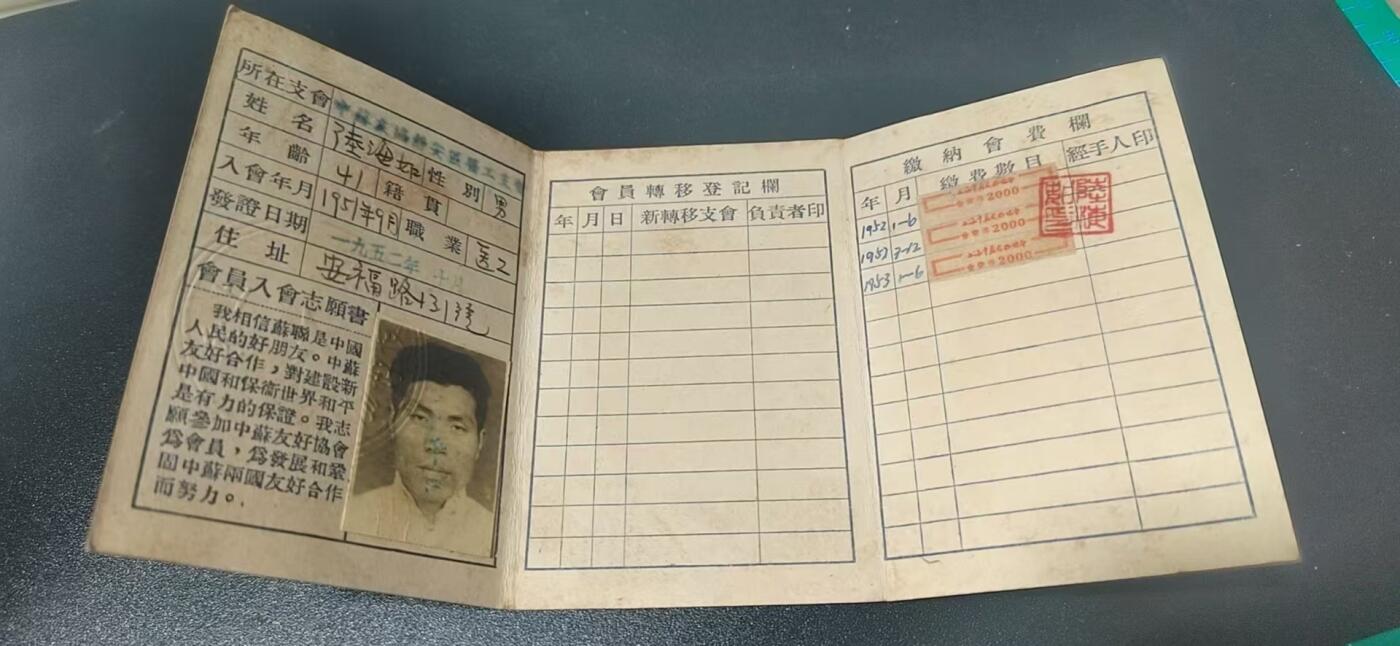 所在支會 中蘇友協靜安區醫工支會
姓名 陸海如 性別 男
年齡 41 籍貫
入會年月 1951年9月 職業 医工
發證日期 一九五二年 十月
住址 安福路131號
會員入會志願書
我相信蘇聯是中國
人民的好朋友。中蘇
友好合作，對建設新
中國和保衛世界和平
是有力的保證。我志
願參加中蘇友好協會
爲會員，爲發展和鞏
固中蘇兩國友好合作
而努力。
會員轉移登記欄
年 月 日 新轉移支會 負責者印
繳納會費欄
年 月 繳費數目 經手人印
1952 1-6 2000
1952 7-12 2000
1953 1-6 2000